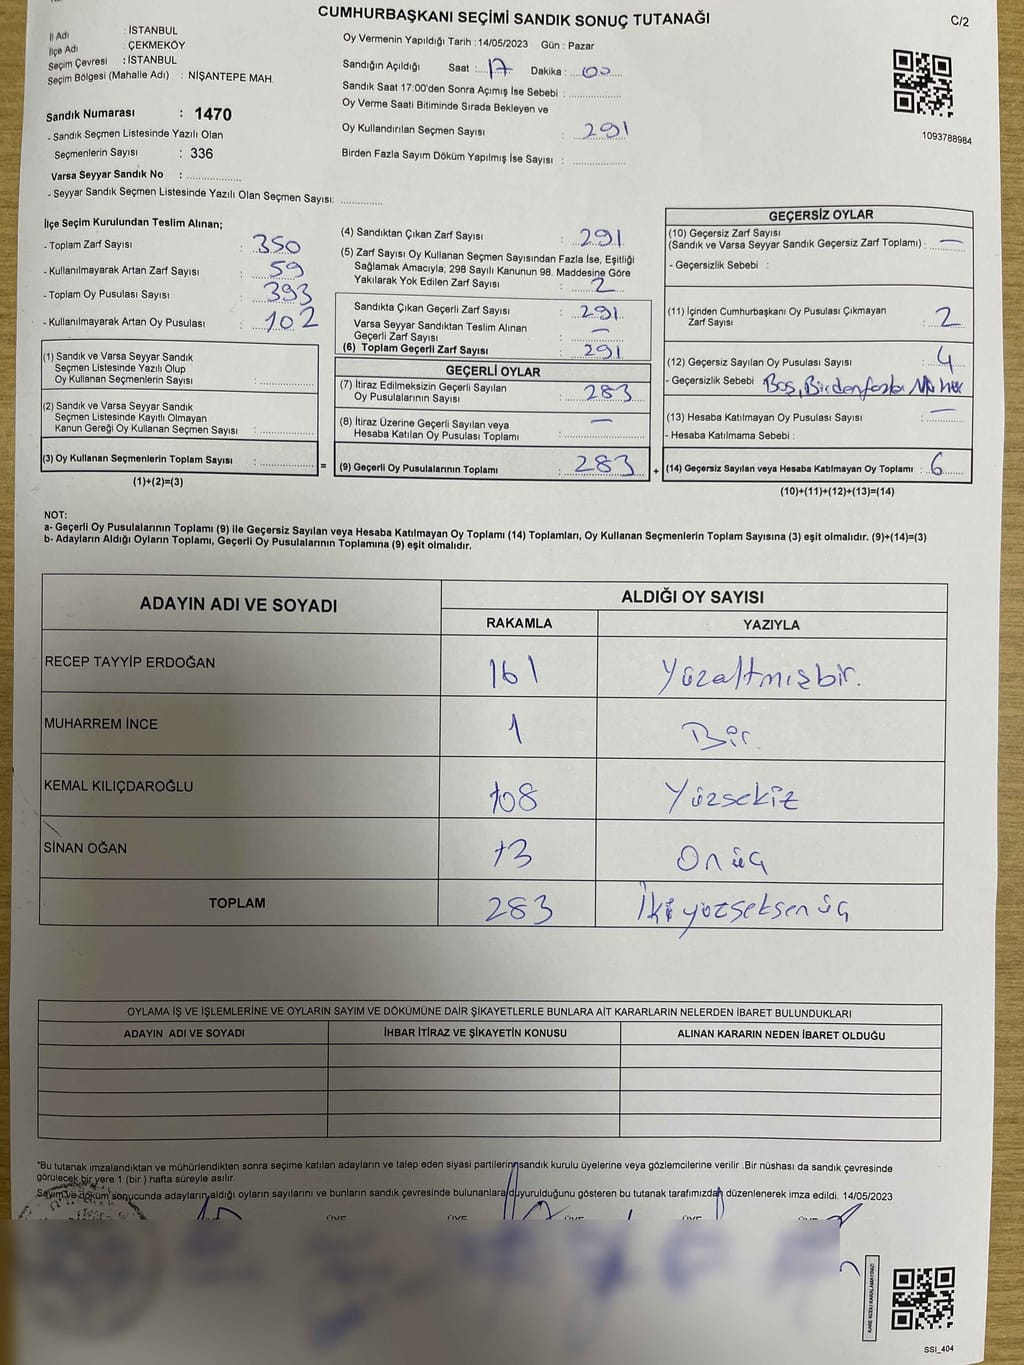 CUMHURBAŞKANI SEÇİMİ SANDIK SONUÇ TUTANAĞI
C/2
İl Adı : İSTANBUL
İlçe Adı : ÇEKMEKÖY
Seçim Çevresi : İSTANBUL
Seçim Bölgesi (Mahalle Adı) : NİŞANTEPE MAH.
Sandık Numarası : 1470
- Sandık Seçmen Listesinde Yazılı Olan
Seçmenlerin Sayısı : 336
Varsa Seyyar Sandık No : ................
- Seyyar Sandık Seçmen Listesinde Yazılı Olan Seçmen Sayısı: ............
Oy Vermenin Yapıldığı Tarih : 14/05/2023 Gün : Pazar
Sandığın Açıldığı Saat : 17 Dakika : 00
Sandık Saat 17:00'den Sonra Açımış İse Sebebi : ................
Oy Verme Saati Bitiminde Sırada Bekleyen ve
Oy Kullandırılan Seçmen Sayısı : 291
Birden Fazla Sayım Döküm Yapılmış İse Sayısı : ................
1093788984
İlçe Seçim Kurulundan Teslim Alınan;
- Toplam Zarf Sayısı : 350
- Kullanılmayarak Artan Zarf Sayısı : 59
- Toplam Oy Pusulası Sayısı : 393
- Kullanılmayarak Artan Oy Pusulası : 102
(1) Sandık ve Varsa Seyyar Sandık
Seçmen Listesinde Yazılı Olup
Oy Kullanan Seçmenlerin Sayısı : ................
(2) Sandık ve Varsa Seyyar Sandık
Seçmen Listesinde Kayıtlı Olmayan
Kanun Gereği Oy Kullanan Seçmen Sayısı : ................
(3) Oy Kullanan Seçmenlerin Toplam Sayısı : ................ =
(1)+(2)=(3)
(4) Sandıktan Çıkan Zarf Sayısı : 291
(5) Zarf Sayısı Oy Kullanan Seçmen Sayısından Fazla İse, Eşitliği
Sağlamak Amacıyla; 298 Sayılı Kanunun 98. Maddesine Göre
Yakılarak Yok Edilen Zarf Sayısı : 2
Sandıkta Çıkan Geçerli Zarf Sayısı : 291
Varsa Seyyar Sandıktan Teslim Alınan
Geçerli Zarf Sayısı : —
(6) Toplam Geçerli Zarf Sayısı : 291
GEÇERLİ OYLAR
(7) İtiraz Edilmeksizin Geçerli Sayılan
Oy Pusulalarının Sayısı : 283
(8) İtiraz Üzerine Geçerli Sayılan veya
Hesaba Katılan Oy Pusulası Toplamı : —
(9) Geçerli Oy Pusulalarının Toplamı : 283 +
GEÇERSİZ OYLAR
(10) Geçersiz Zarf Sayısı
(Sandık ve Varsa Seyyar Sandık Geçersiz Zarf Toplamı) : —
- Geçersizlik Sebebi :
(11) İçinden Cumhurbaşkanı Oy Pusulası Çıkmayan
Zarf Sayısı : 2
(12) Geçersiz Sayılan Oy Pusulası Sayısı : 4
- Geçersizlik Sebebi Boş, Birden fazla
(13) Hesaba Katılmayan Oy Pusulası Sayısı : —
- Hesaba Katılmama Sebebi :
(14) Geçersiz Sayılan veya Hesaba Katılmayan Oy Toplamı : 6
(10)+(11)+(12)+(13)=(14)
NOT:
a- Geçerli Oy Pusulalarının Toplamı (9) ile Geçersiz Sayılan veya Hesaba Katılmayan Oy Toplamı (14) Toplamları, Oy Kullanan Seçmenlerin Toplam Sayısına (3) eşit olmalıdır. (9)+(14)=(3)
b- Adayların Aldığı Oyların Toplamı, Geçerli Oy Pusulalarının Toplamına (9) eşit olmalıdır.
ADAYIN ADI VE SOYADI ALDIĞI OY SAYISI
RAKAMLA YAZIYLA
RECEP TAYYİP ERDOĞAN 161 Yüzaltmışbir.
MUHARREM İNCE 1 Bir.
KEMAL KILIÇDAROĞLU 108 Yüzsekiz
SİNAN OĞAN 13 Onüç
TOPLAM 283 İkiyüzseksenüç
OYLAMA İŞ VE İŞLEMLERİNE VE OYLARIN SAYIM VE DÖKÜMÜNE DAİR ŞİKAYETLERLE BUNLARA AİT KARARLARIN NELERDEN İBARET BULUNDUKLARI
ADAYIN ADI VE SOYADI İHBAR İTİRAZ VE ŞİKAYETİN KONUSU ALINAN KARARIN NEDEN İBARET OLDUĞU
*Bu tutanak imzalandıktan ve mühürlendikten sonra seçime katılan adayların ve talep eden siyasi partilerin sandık kurulu üyelerine veya gözlemcilerine verilir .Bir nüshası da sandık çevresinde
görülecek bir yere 1 (bir ) hafta süreyle asılır.
Sayım ve döküm sonucunda adayların aldığı oyların sayılarını ve bunların sandık çevresinde bulunanlara duyurulduğunu gösteren bu tutanak tarafımızdan düzenlenerek imza edildi. 14/05/2023
ÜYE ÜYE ÜYE ÜYE ÜYE
KARE KODU KARALAMAYINIZ!
SSI_404